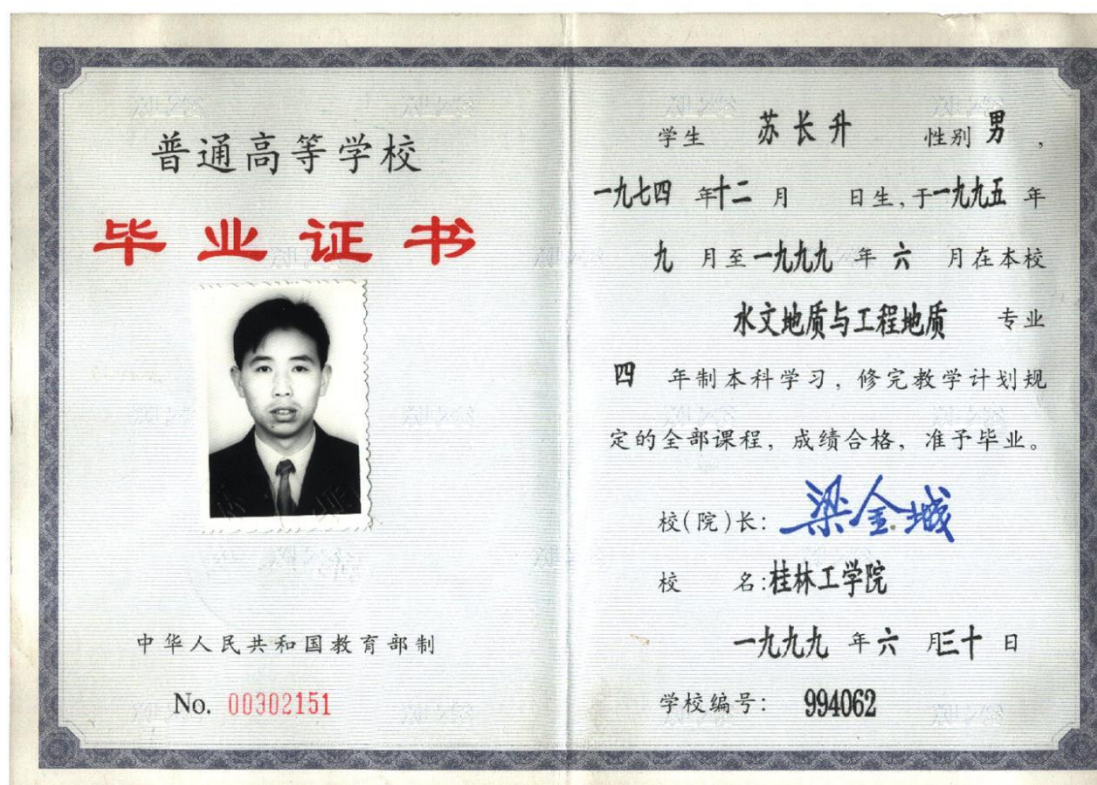 普通高等学校
毕业证书
中华人民共和国教育部制
No. 00302151
学生 苏长升 性别 男，
一九七四 年 十二 月 日生，于 一九九五 年
九 月至 一九九九 年 六 月在本校
水文地质与工程地质 专业
四 年制本科学习，修完教学计划规
定的全部课程，成绩合格，准予毕业。
校(院)长： 梁金城
校 名：桂林工学院
一九九九 年 六 月 三十 日
学校编号： 994062